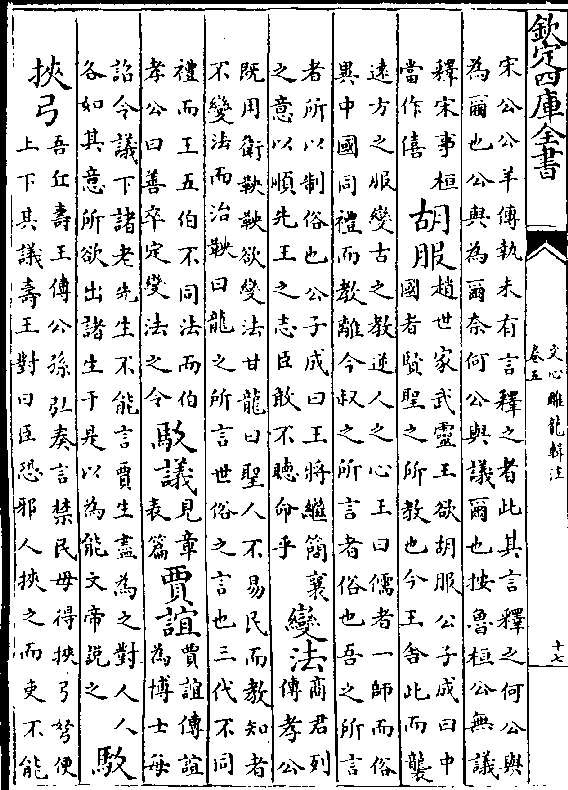 欽定四庫全書
文心雕龍輯注
卷五
十七
宋公公羊傳執未有言釋之者此其言釋之何公與
為爾也公與為爾奈何公與議爾也按魯桓公無議
釋宋事桓
當作僖
胡服
趙世家武靈王欲胡服公子成曰中
國者賢聖之所教也今王舍此而襲
遠方之服變古之教逆人之心王曰儒者一師而俗
異中國同禮而教離今叔之所言者俗也吾之所言
者所以制俗也公子成曰王將繼簡襄
之意以順先王之志臣敢不聽命乎
變法
商君列
傳孝公
既用衛鞅鞅欲變法甘龍曰聖人不易民而教知者
不變法而治鞅曰龍之所言世俗之言也三代不同
禮而王五伯不同法而伯
孝公曰善卒定變法之令
駮議
見章
表篇
賈誼
賈誼傳誼
為博士每
詔令議下諸老先生不能言賈生盡為之對人人
各如其意所欲出諸生于是以為能文帝說之
駮
挾弓
吾丘壽王傳公孫弘奏言禁民毋得挾弓弩便
上下其議壽王對曰臣恐邪人挾之而吏不能